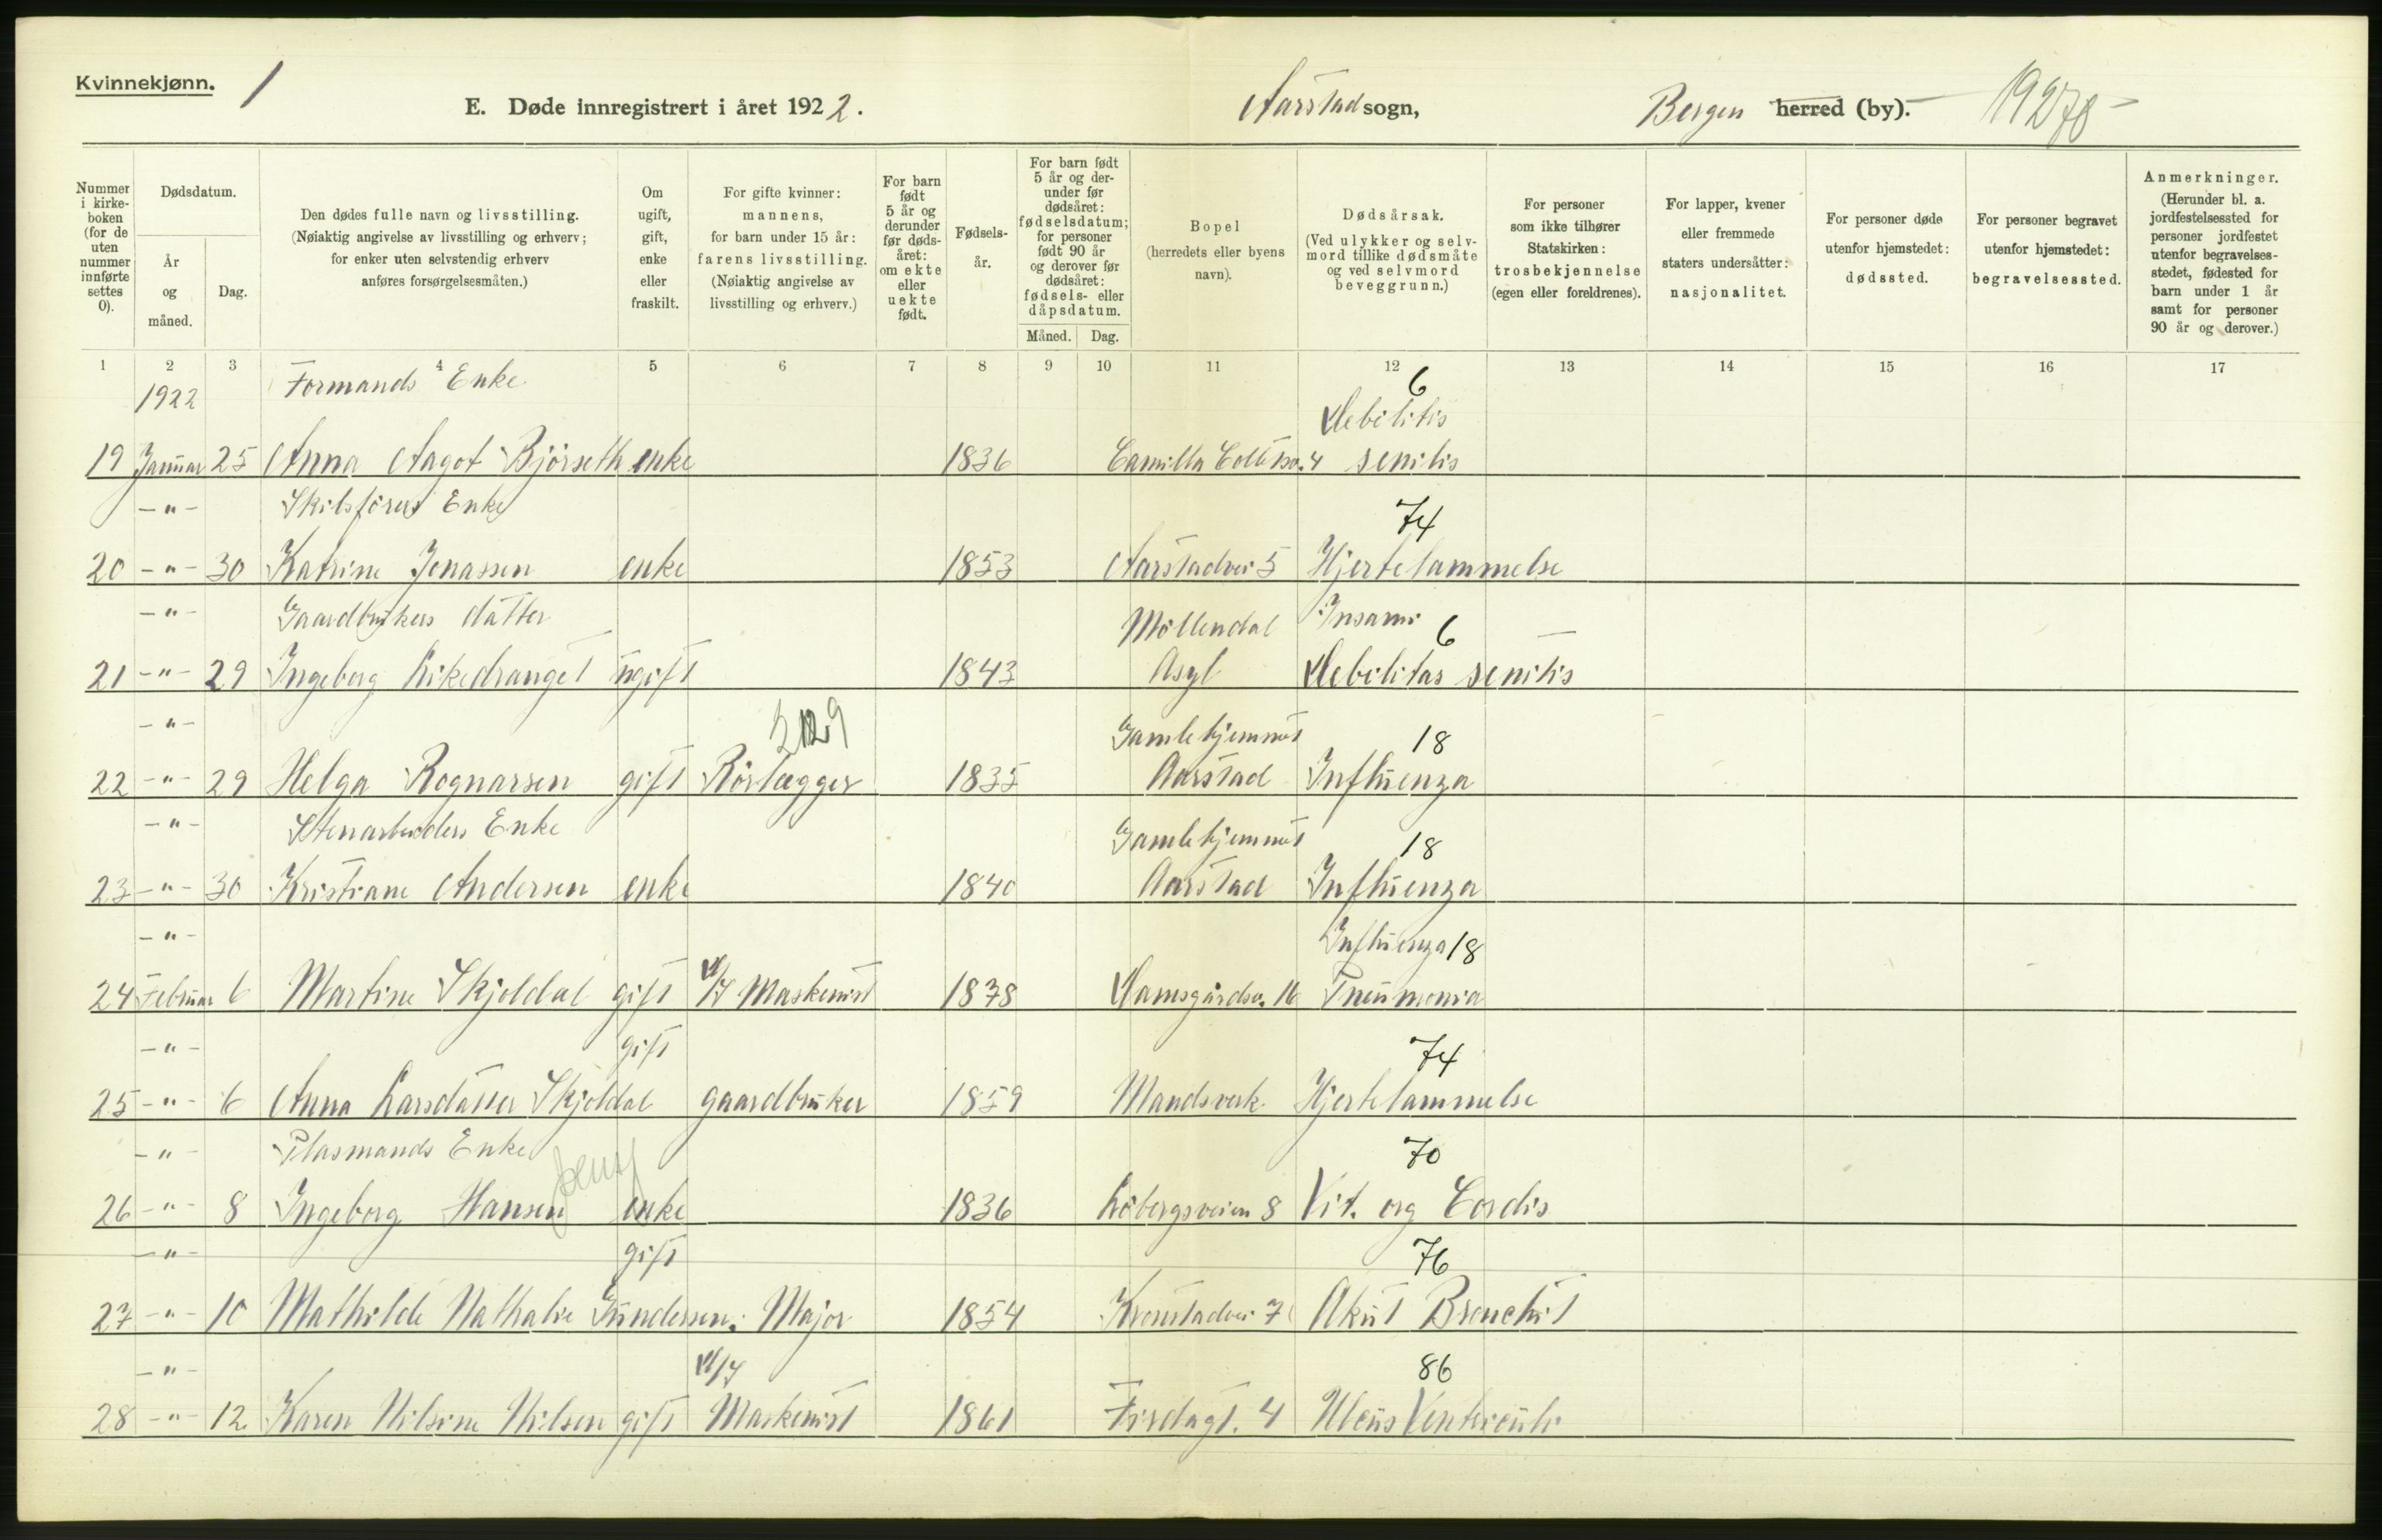 Kvinnekjønn. 1
E. Døde innregistrert i året 1922. Aarstad sogn, Bergen herred (by). 19278
Nummer i kirkeboken (for de uten nummer innførte settes 0).
Dødsdatum.
År og måned.
Dag.
Den dødes fulle navn og livsstilling.
(Nøiaktig angivelse av livsstilling og erhverv;
for enker uten selvstendig erhverv
anføres forsørgelsesmåten.)
Om ugift, gift, enke eller fraskilt.
For gifte kvinner:
mannens,
for barn under 15 år:
farens livsstilling.
(Nøiaktig angivelse av
livsstilling og erhverv.)
For barn født 5 år og derunder før dødsåret: om ekte eller uekte født.
Fødselsår.
For barn født 5 år og derunder før dødsåret: fødselsdatum; for personer født 90 år og derover før dødsåret: fødsels- eller dåpsdatum.
Måned. Dag.
Bopel
(herredets eller byens
navn).
Dødsårsak.
(Ved ulykker og selvmord tillike dødsmåte og ved selvmord beveggrunn.)
For personer
som ikke tilhører
Statskirken:
trosbekjennelse
(egen eller foreldrenes).
For lapper, kvener
eller fremmede
staters undersåtter:
nasjonalitet.
For personer døde
utenfor hjemstedet:
dødssted.
For personer begravet
utenfor hjemstedet:
begravelsessted.
Anmerkninger.
(Herunder bl. a.
jordfestelsessted for
personer jordfestet
utenfor begravelsesstedet, fødested for
barn under 1 år
samt for personer
90 år og derover.)
1 2 3 4 5 6 7 8 9 10 11 12 13 14 15 16 17
1922 Formands Enke 6 Debilitis
19 Januar 25 Anna Aagot Björseth enke 1836 Camilla Collets v. 4 senilis
-"- Skibsförers Enke 74
20 -"- 30 Katrine Jonassen enke 1853 Aarstadvei 5 Hjertelammelse
-"- Gaardbrukers datter Möllendal Insani 6
21 -"- 29 Ingeborg Likedranget ugift 1843 Asyl Debilitas senilis
-"- 2129 Gamlehjemmet 18
22 -"- 29 Helga Rognarsen gift Rörlægger 1835 Aarstad Influenza
-"- Stenarbeiders Enke Gamlehjemmet 18
23 -"- 30 Kristiane Andersen enke 1840 Aarstad Influenza
-"- Influenza 18
24 Februar 6 Martine Skjoldal gift D/S Maskinist 1878 Damsgårdsv. 16 Pneumonia
-"- gift 74
25 -"- 6 Anna Larsdatter Skjoldal gaardbruker 1859 Mandsverk Hjertelammelse
-"- Plasmands Enke 70
26 -"- 8 Ingeborg Hansen enke 1836 Löbergsveien 8 Vit. org Cordis
-"- gift 76
27 -"- 10 Mathilde Nathalie Gundersen. Major 1854 Kronstadvei 7 Akut Bronchit
-"- D/S 86
28 -"- 12 Karen Nilsine Nilsen gift Maskinist 1861 Firdagt. 4 Ulcus Ventriculi